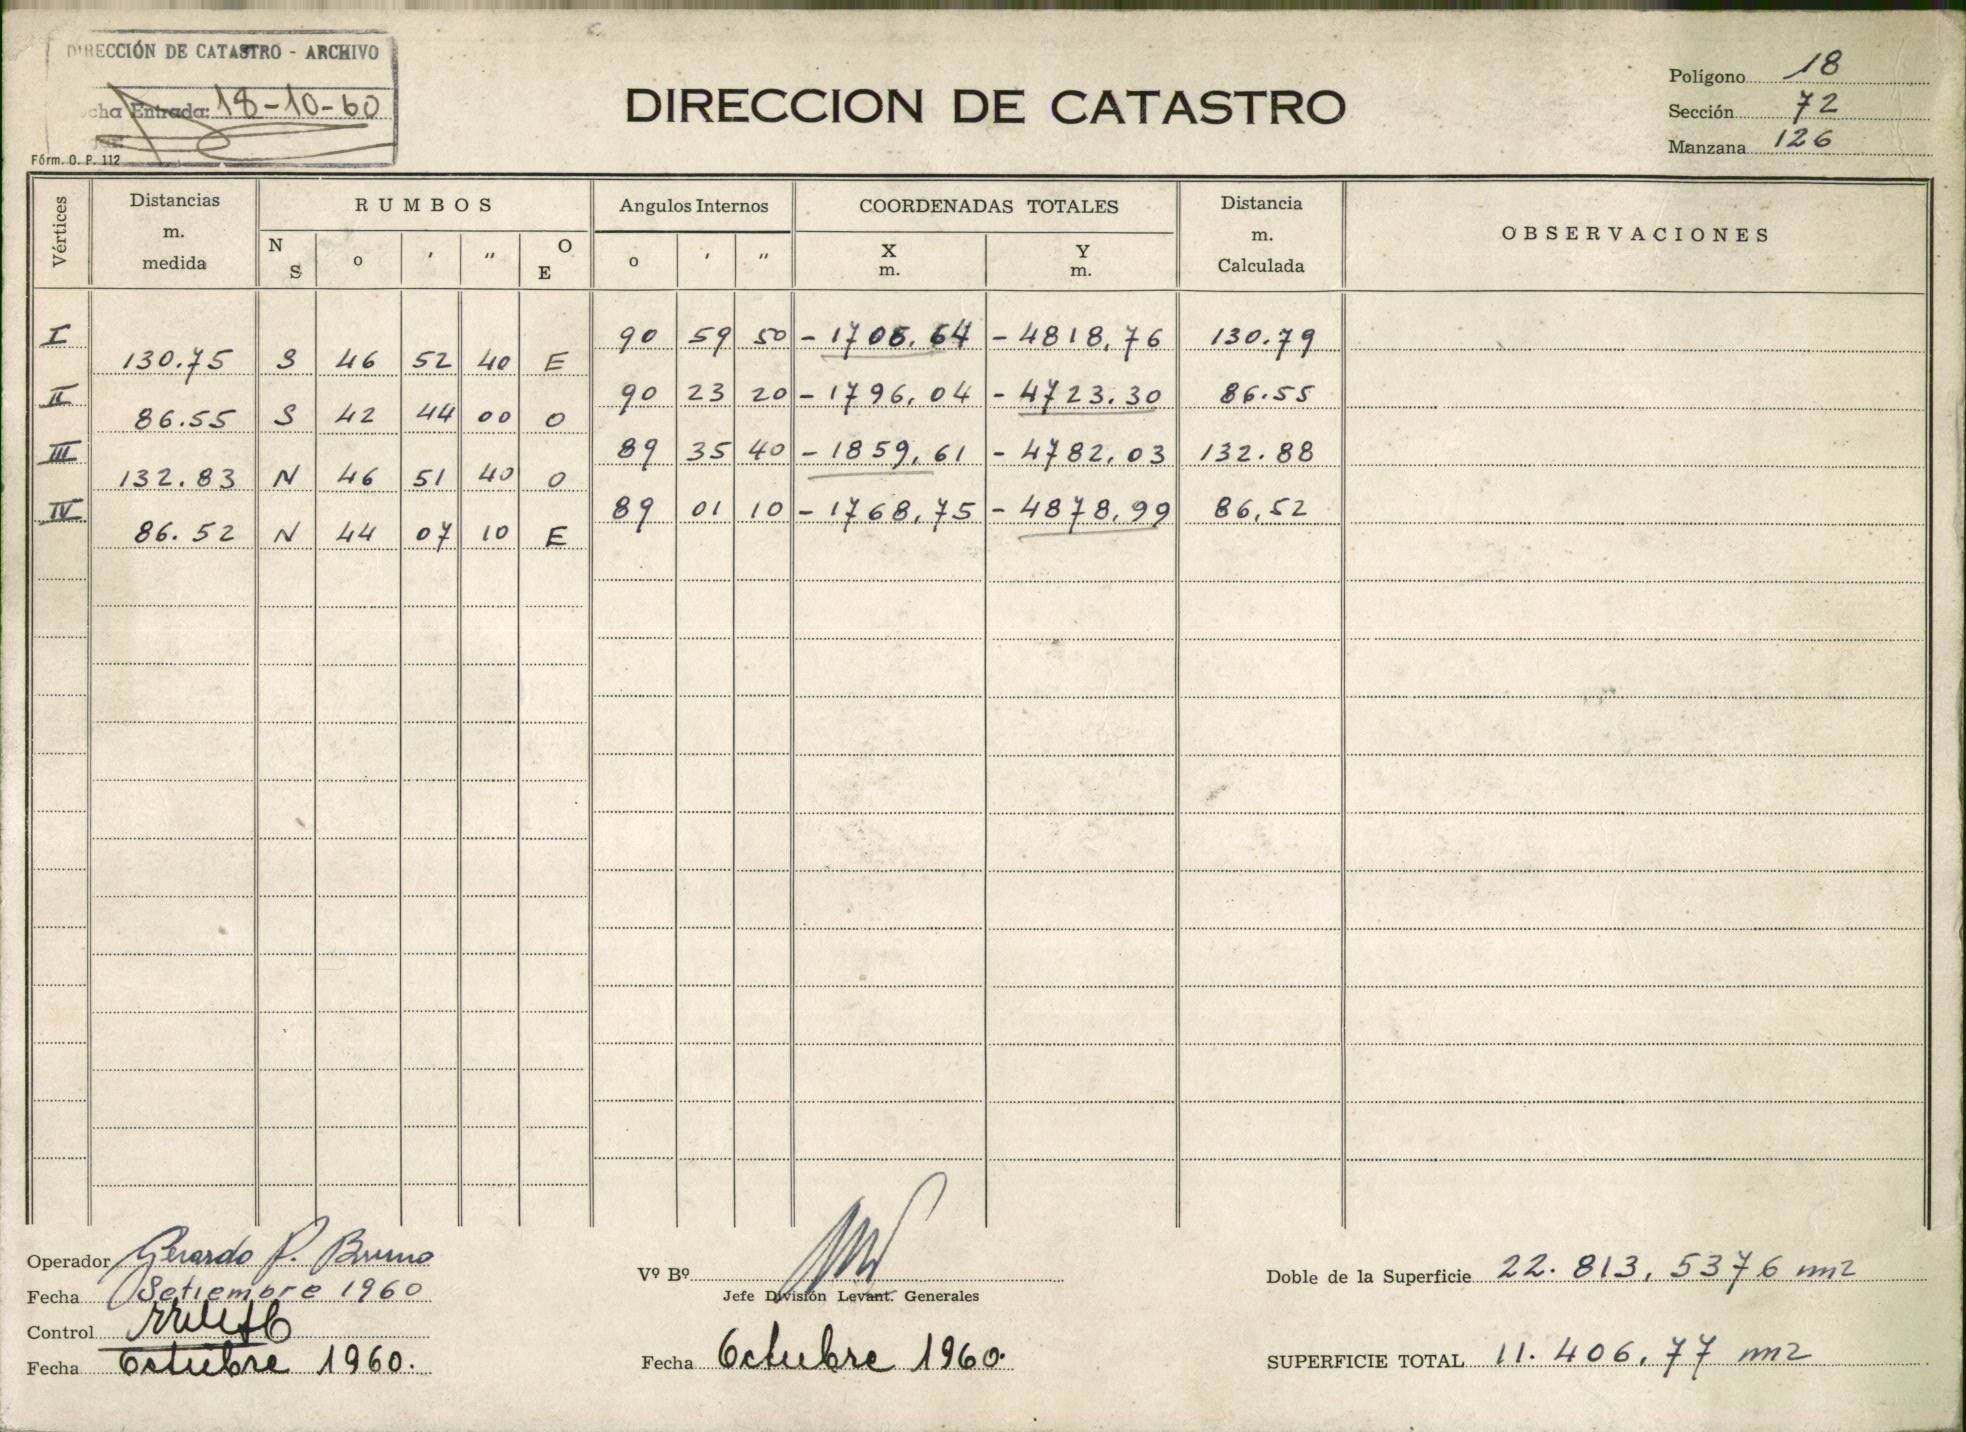 DIRECCIÓN DE CATASTRO - ARCHIVO
Entrada: 18-10-60
Fórm. O. P. 112
DIRECCION DE CATASTRO
Polígono 18
Sección 72
Manzana 126
Vértices
Distancias m. medida
RUMBOS
N S
o
'
"
O E
Angulos Internos
o
'
"
COORDENADAS TOTALES
X m.
Y m.
Distancia m. Calculada
OBSERVACIONES
I 90 59 50 - 1708,64 - 4818,76 130.79
130.75 S 46 52 40 E
II 90 23 20 - 1796,04 - 4723.30 86.55
86.55 S 42 44 00 O
III 89 35 40 - 1859,61 - 4782,03 132.88
132.83 N 46 51 40 O
IV 89 01 10 - 1768,75 - 4878,99 86,52
86.52 N 44 07 10 E
Operador Gerardo P. Bruno
Fecha Setiembre 1960
Control
Fecha Octubre 1960.
Vº Bº
Jefe División Levant. Generales
Fecha Octubre 1960.
Doble de la Superficie 22.813,5376 m2
SUPERFICIE TOTAL 11.406,77 m2